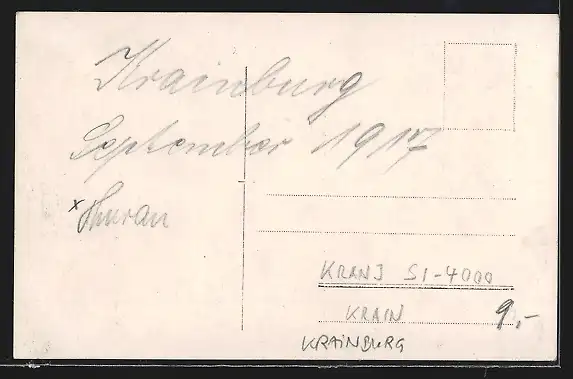 Krainburg
September 1917
x Thuran
KRANJ SI-4000
KRAIN
9.-
KRAINBURG